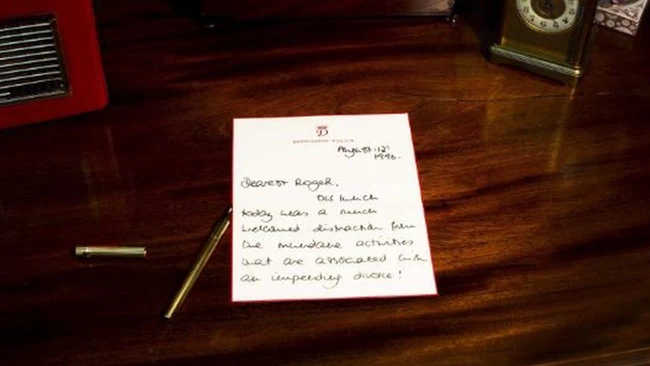 D
KENSINGTON PALACE
August 12th
1996.
Dearest Roger,
Our lunch
today was a much
welcomed distraction from
the mundane activities
that are associated with
an impending divorce!